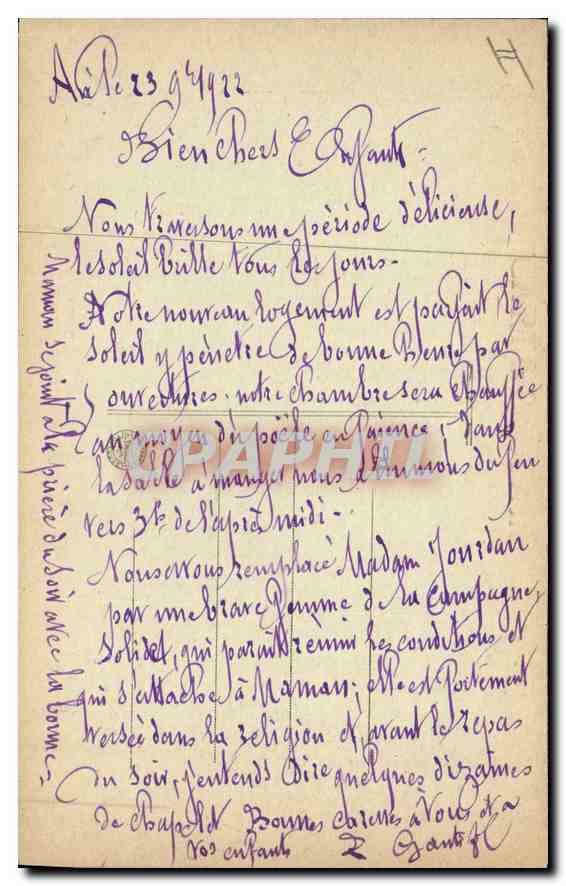 23 9bre 1922
Bien Chers Enfants
Nous traversons une période délicieuse,
le soleil brille tous les jours.
Notre nouveau logement est parfait le
soleil y pénètre de bonne heure par
ouvertures. notre chambre sera chauffée
au moyen du poële en faïence; dans
la salle à manger nous allumons du feu
vers 3h. de l'après midi.
Nous avons remplacé Madam Jourdan
par une brave femme de la campagne,
qui paraît réunir les conditions et
qui s'attache à Maman; elle est fortement
versée dans la religion et, avant le repas
du soir, j'entends dire quelques dizaines
de chapelet Bonnes caresses à vous et à
vos enfants
Maman se joint à la prière du soir avec la bonne.
CPAPHIL